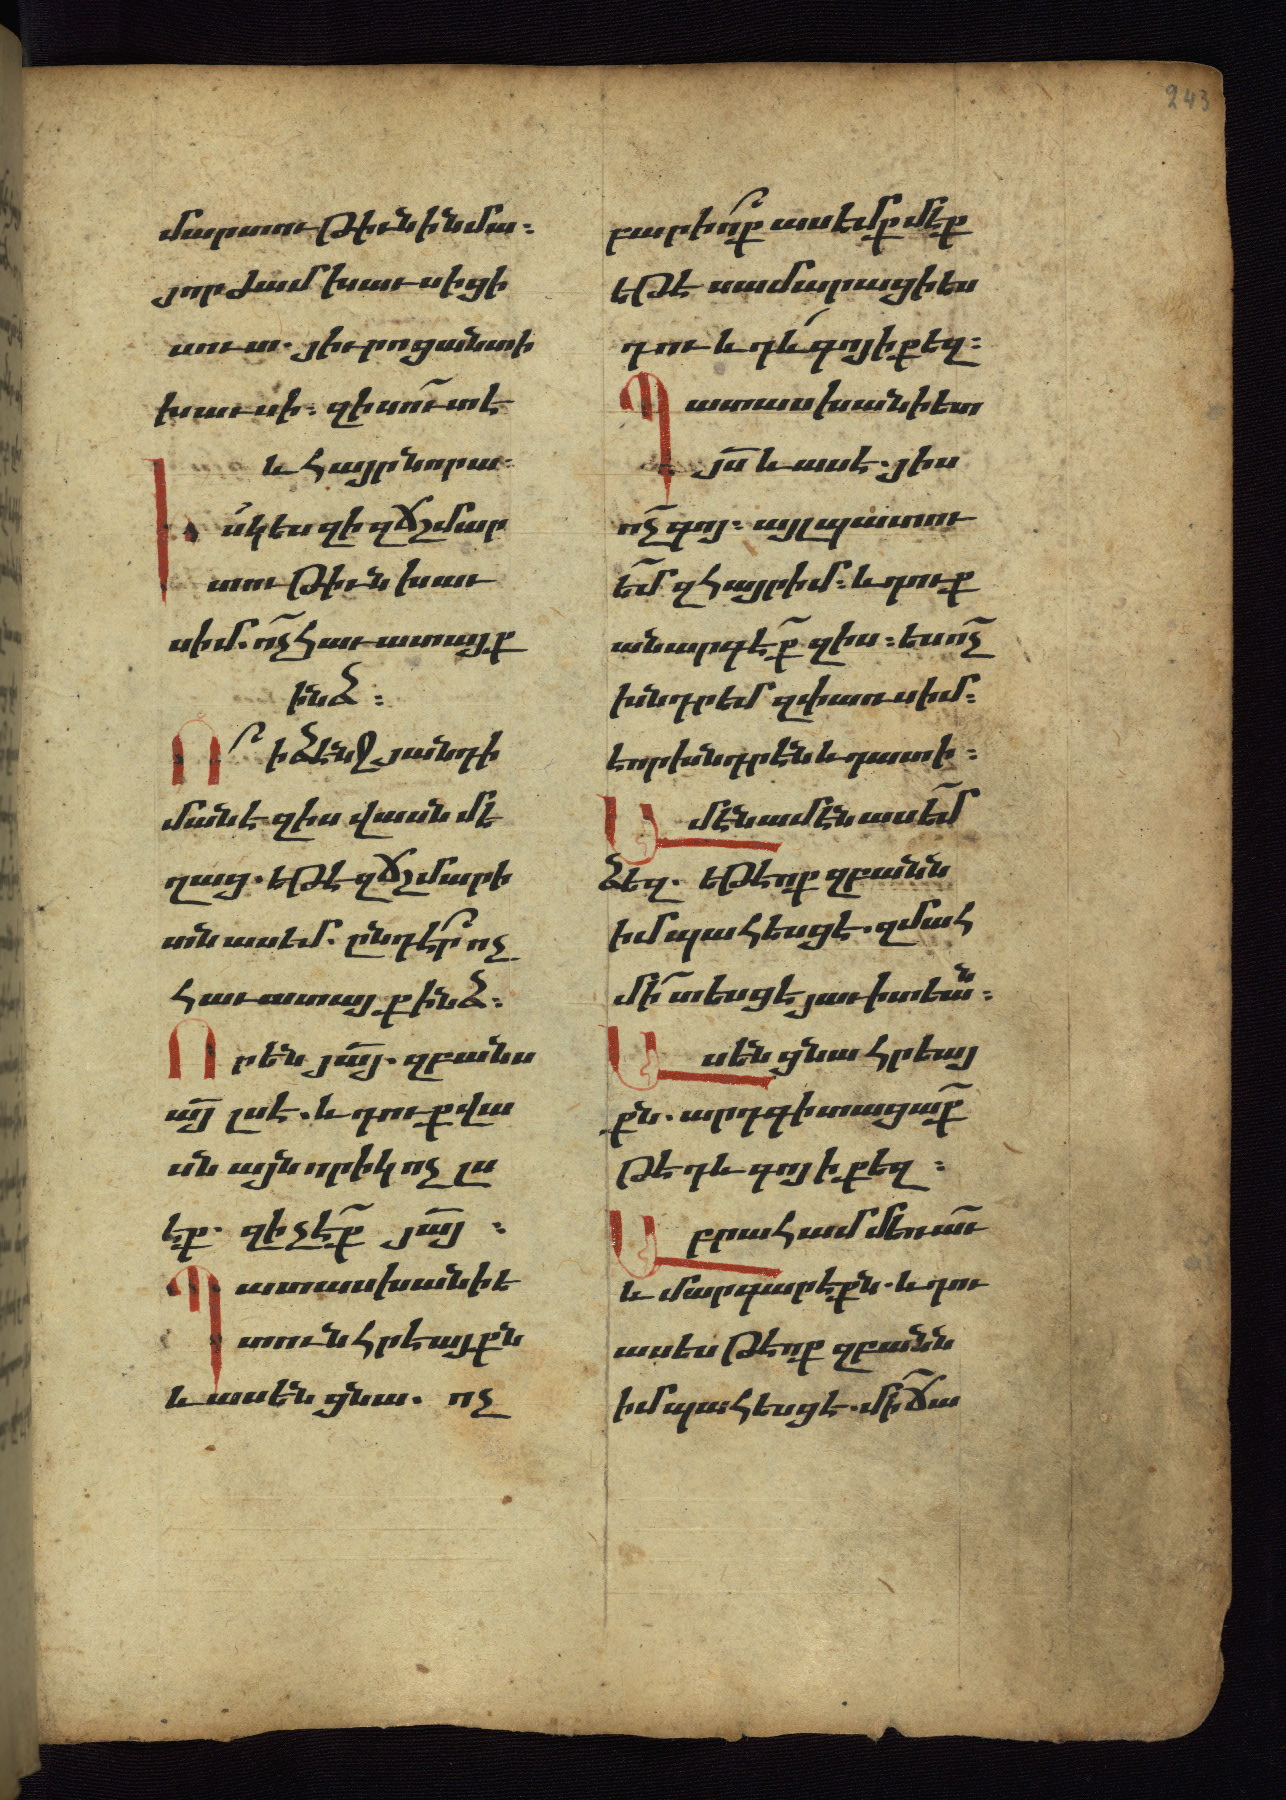 243
մարտութիւն ի նմա։
յորժամ խաւսիցի
սուտ. յիւրոցանտի
խաւսի։ զի սուտ է
և հայր նորա։
Իսկ ես զի զճշմար
տութիւն խաւ
սիմ. ոչ հաւատայք
ինձ։
Ո՞ ի ձէնջ յանդի
մանէ զիս վասն մե
ղաց. եթէ զճշմարի
տն ասեմ. ընդէր ոչ
հաւատայք ինձ։
Որ էն յայ. զբանս
այ լսէ. և դուք վա
սն այնորիկ ոչ լս
էք. զի չէք յայ ։
Պատասխանի ե
տուն հրեայքն
և ասեն ցնա. ոչ
բարիոք ասեմք մեք
եթէ սամարացի ես
դու և դև գոյ ի քեզ։
Պատասխանի ետ
յս և ասէ. յիս
ոչ գոյ։ այլ պատու
եմ զհայր իմ։ և դուք
անարգէք զիս։ ես ոչ
խնդրեմ զփառս իմ։
է որ խնդրէն և դատի։
Ամէն ամէն ասեմ
ձեզ. եթէ ոք զբանն
իմ պահեսցէ. զմահ
մի տեսցէ յաւիտեան։
Ասեն ցնա հրեայ
քն. արդ գիտացաք
թէ դև գոյ ի քեզ ։
Աբրահամ մեռաւ
և մարգարէքն. և դու
ասես թէ ոք զբանն
իմ պահեսցէ. մի ճա